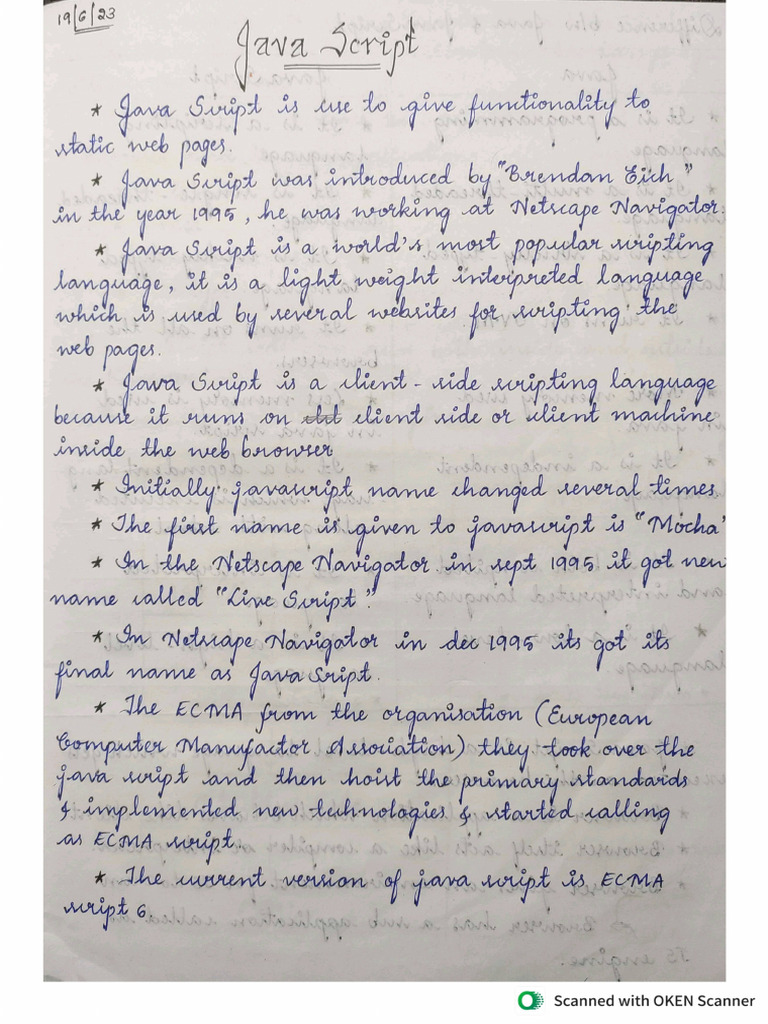 19/6/23
Java Script
* Java Script is use to give functionality to
static web pages.
* Java Script was introduced by "Brendan Eich"
in the year 1995, he was working at Netscape Navigator.
* Java Script is a world's most popular scripting
language, it is a light weight interpreted language
which is used by several websites for scripting the
web pages.
* Java Script is a client - side scripting language
because it runs on client side or client machine
inside the web browser
* Initially javascript name changed several times
* The first name is given to javascript is "Mocha"
* In the Netscape Navigator in sept 1995 it got new
name called "Live Script".
* In Netscape Navigator in dec 1995 its got its
final name as Java Sript.
* The ECMA from the organisation (European
Computer Manufactor Association) they took over the
java script and then hoist the primary standards
& implemented new technologies & started calling
as ECMA script.
* The current version of java script is ECMA
script 6.
Scanned with OKEN Scanner